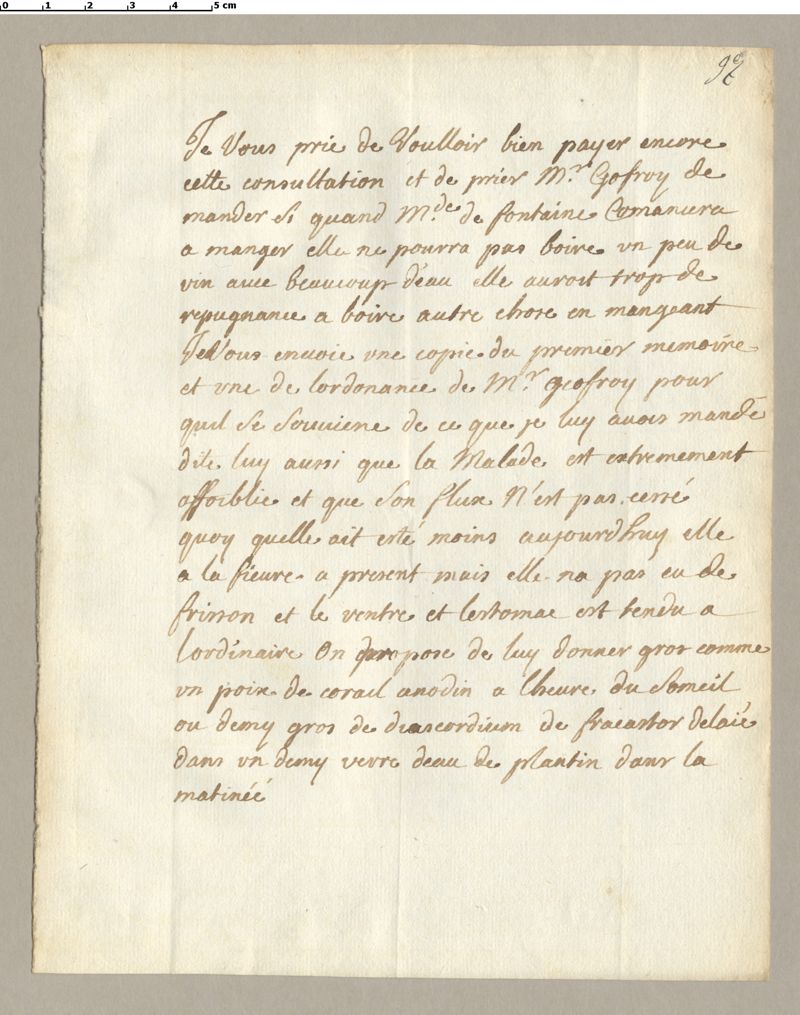 0 1 2 3 4 5 cm
Je Vous prie de Voulloir bien payer encore
cette consultation et de prier Mr. Gofroy de
mander si quand Mde. de fontaine Comancera
a manger elle ne pourra pas boire un peu de
vin avec beaucoup d'eau elle auroit trop de
repugnance a boire autre chose en mangeant
Je Vous envoie une copie du premier memoire
et une de lordonance de Mr. geofroy pour
quil se souviene de ce que je luy avois mandé
dite luy aussi que la Malade est extremement
affoiblie et que son flux N'est pas cessé
quoy quelle ait esté moins aujourdhuy elle
a la fievre a present mais elle na pas eu de
frisson et le ventre et lestomac est tendu a
lordinaire On propose de luy donner gros comme
un poix de corail anodin a lheure du someil
ou demy gros de diascordium de fracastor delaié
dans un demy verre deau de plantin dans la
matinéé